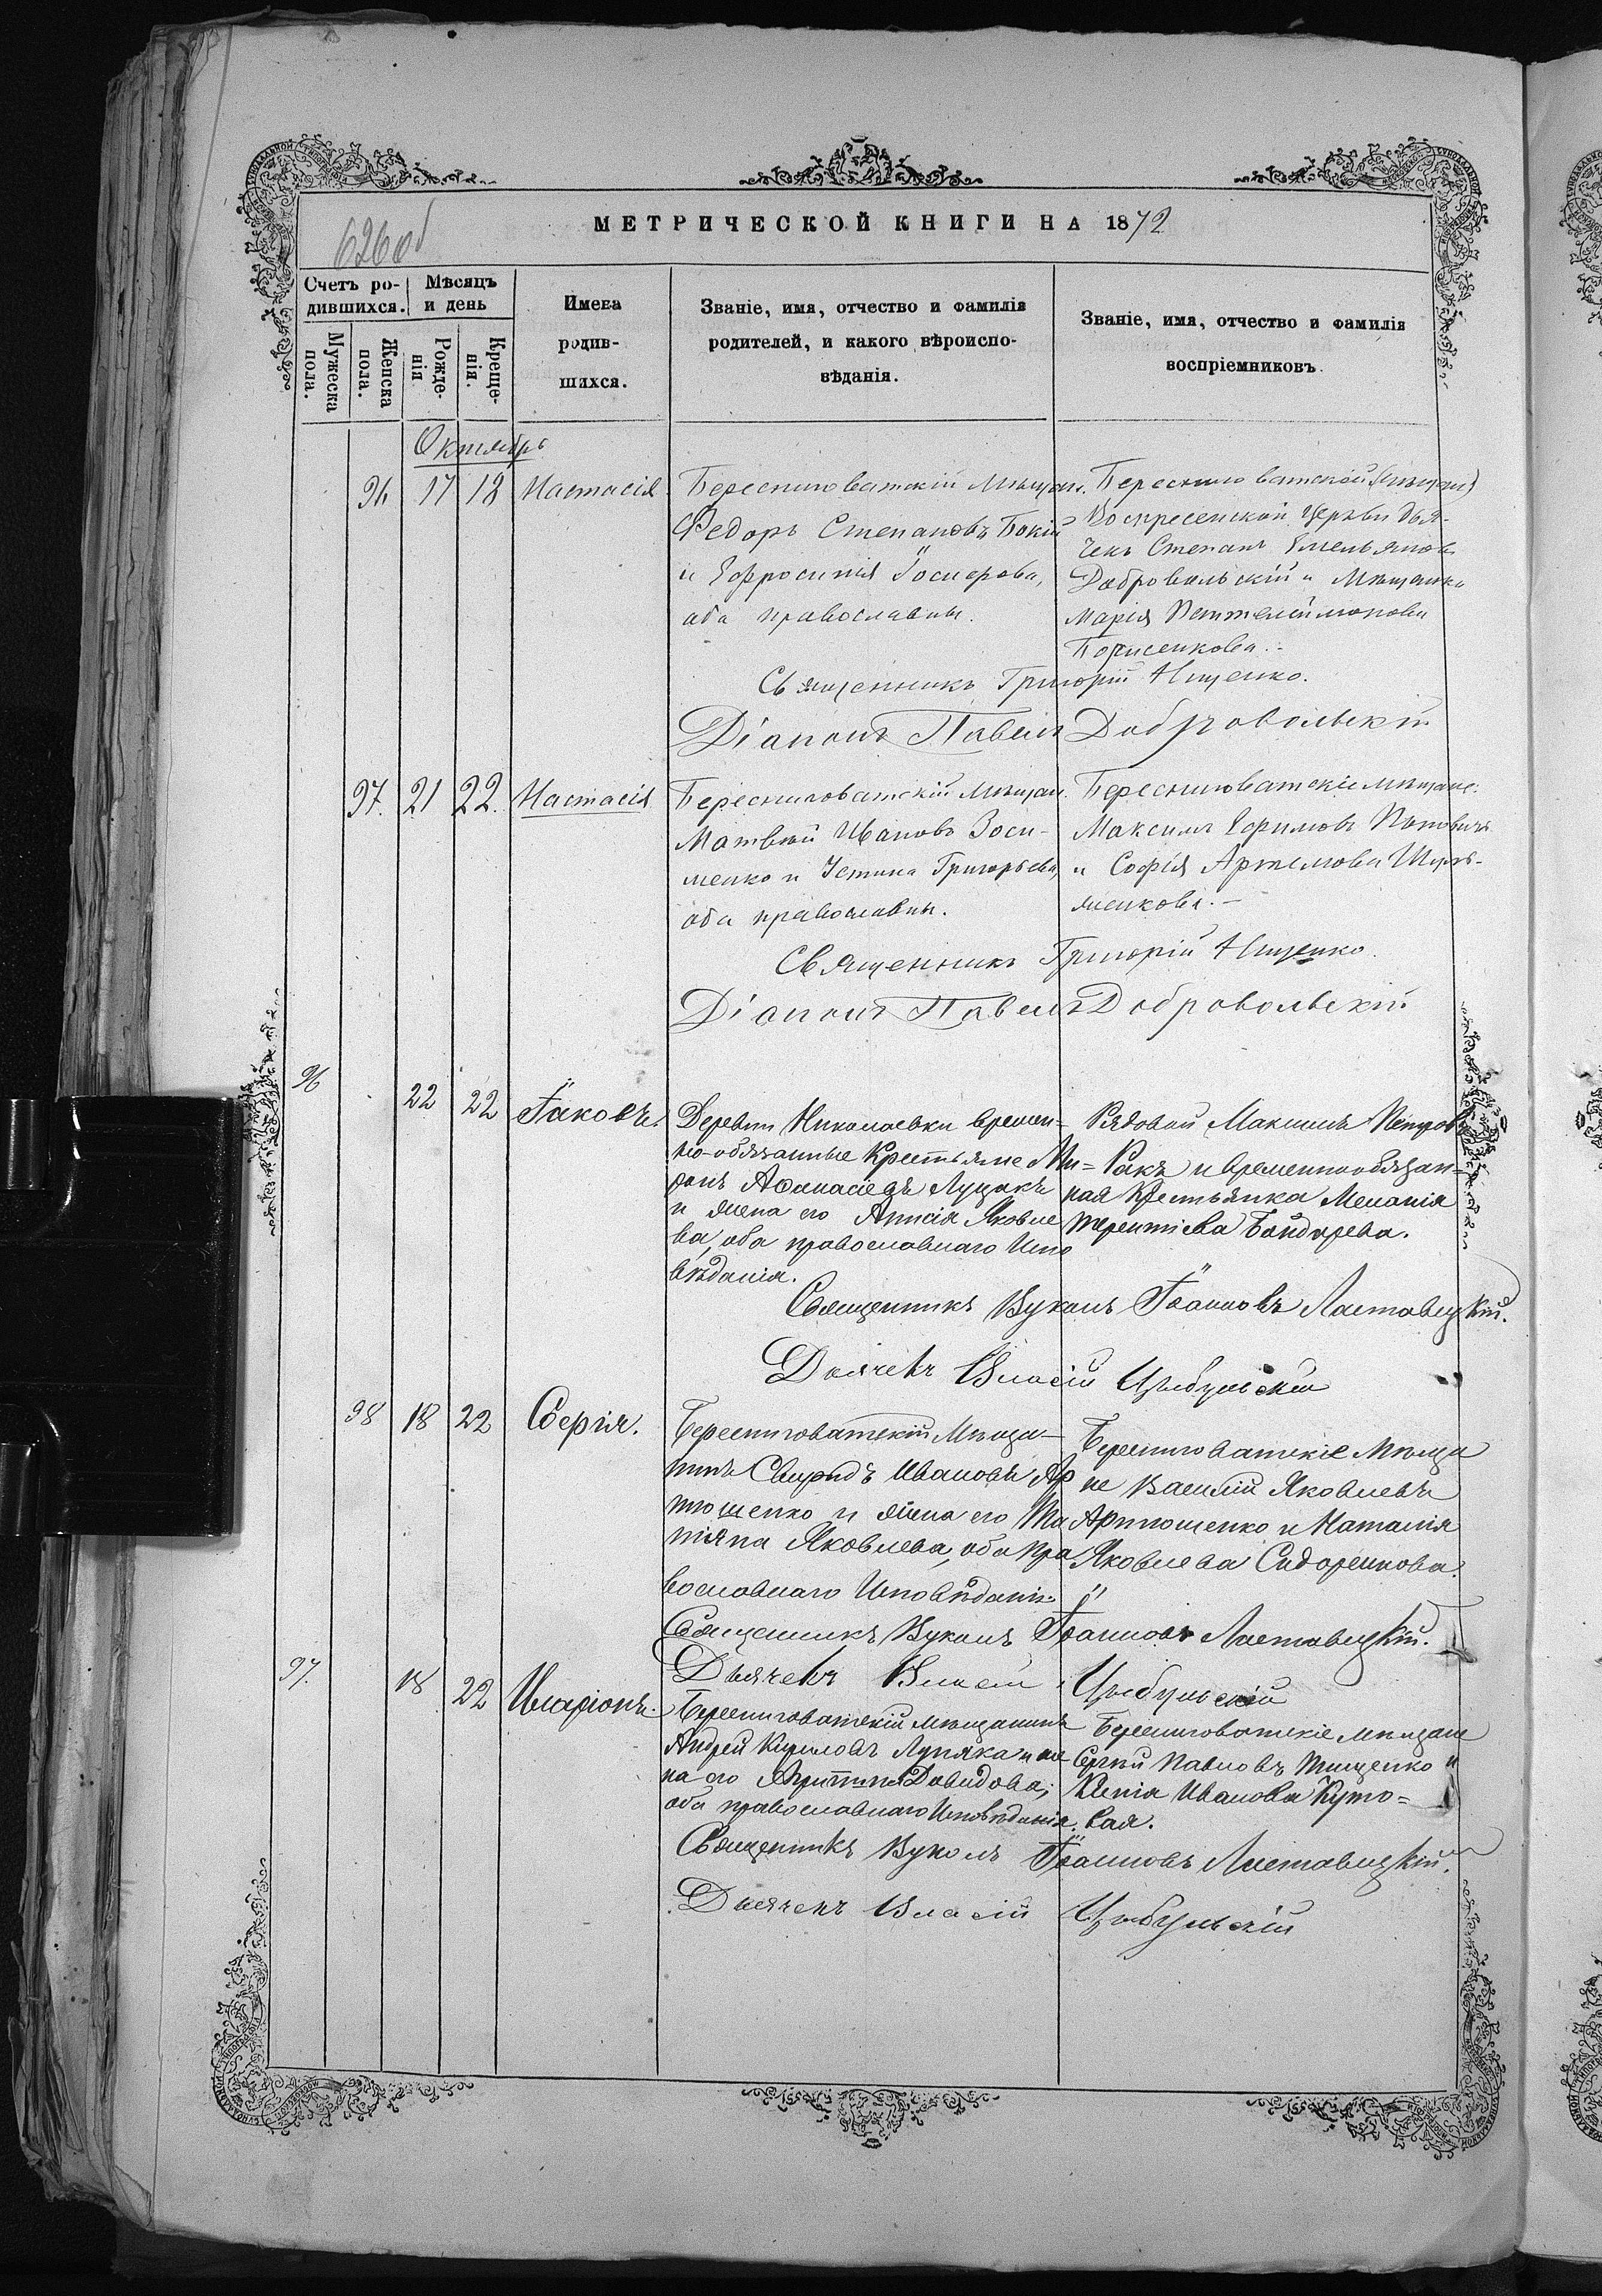 626об
МЕТРИЧЕСКОЙ КНИГИ НА 1872
Счетъ ро-
дившихся.
Мужеска
пола.
Женска
пола.
Мѣсяцъ
и день
Рожде-
нія
Креще-
нія.
Имена
родив-
шихся.
Званіе, имя, отчество и фамилія
родителей, и какого вѣроиспо-
вѣданія.
Званіе, имя, отчество и фамилія
воспріемниковъ.
Октябрь
96 17 18 Настасія
Бересниговатскій мѣщан.
Федоръ Степановъ Бокій
и Ефросинія
оба православны.
Бересниговатской
Воскресенской церкви дья-
чекъ Степанъ Емельянов
Добровольскій и мѣщанка
Марія Пантелеймонова
Борисенкова.
Священникъ Григорій Нищенко.
Діаконъ Павелъ Добровольскій
97. 21 22. Настасія
Бересниговатскій мѣщан.
Матвѣй Ивановъ Зоси-
менко и Устина Григорьева,
оба православны.
Бересниговатскіе мѣщане:
Максимъ Ефимовъ Поповичъ
и Софія Артемова
Священникъ Григорій Нищенко.
Діаконъ Павелъ Добровольскій
96 22 22 Іаковъ.
Деревни Николаевки времен-
но-обязанные Крестьяне Ми=
ронъ Афанасіевъ Луцакъ
и жена его Анисія Яковле
ва, оба православнаго Испо
вѣданія.
Рядовой Максимъ Петровъ
Ракъ и временнообязан=
ная Крестьянка Меланія
Терентіева Бондарева.
Священникъ Вуколъ Іоанновъ Ластовецкій.
Дьячекъ Власій Цыбульскій
98 18 22 Сергія.
Береснеговатскій Мѣща-
нинъ Свиридъ Ивановъ Ар
тюшенко и жена его Та
тіяна Яковлева, оба пра
вославнаго Исповѣданія
Береснеговатскіе Мѣща
не Василій Яковлевъ
Артюшенко и Наталія
Яковлева Сидоренкова.
Священникъ Вуколъ Іоанновъ Ластовецкій.
Дьячекъ Власій Цыбульскій
97. 18 22 Иларіонъ.
Береснеговатскій мѣщанинъ
Андрей Кириловъ Лупяка и же
на его Агрипина Давидова;
оба православнаго Исповѣданія.
Береснеговатскіе мѣщане
Сергій Павловъ Тищенко и
Ксенія Иванова Куто=
вая.
Священникъ Вуколъ Іоанновъ Ластовецкій.
Дьячекъ Власій Цыбульскій